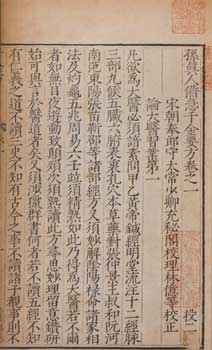 孫真人備急千金要方卷之一
宋朝奉郎守太常少卿充秘閣校理林億等校正
論大醫習業第一
凡欲為大醫必須諳素問甲乙黃帝鍼經明堂流注十二經脉
三部九候五臟六腑表裏孔穴本草藥對張仲景王叔和阮河
南范東陽張苗靳邵等諸部經方又須妙解陰陽祿命諸家相
法及灼龜五兆周易六壬並須精熟如此乃得為大醫若不爾
者如無目夜遊動致顛殞次須熟讀此方尋思妙理留意鑽研
始可與言於醫道者矣又須涉獵群書何者若不讀五經不知
有仁義之道不讀三史不知有古今之事不讀諸子覩事則不